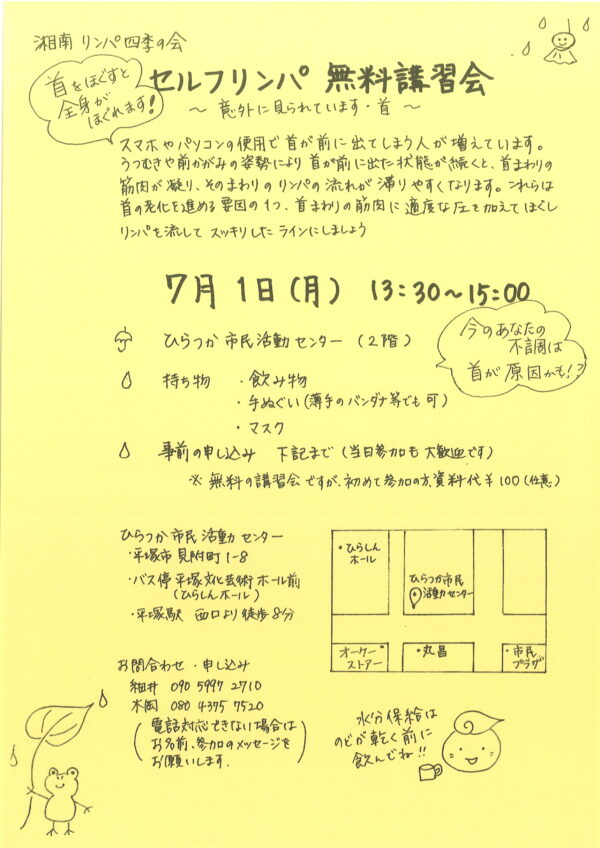 湘南 リンパ四季の会
首をほぐすと
全身が
ほぐれます!
セルフリンパ 無料講習会
～ 意外に見られています・首 ～
スマホやパソコンの使用で首が前に出てしまう人が増えています。
うつむきや前かがみの姿勢により首が前に出た状態が続くと、首まわりの
筋肉が凝り、そのまわりのリンパの流れが滞りやすくなります。これらは
首の老化を進める要因の1つ、首まわりの筋肉に適度な圧を加えてほぐし
リンパを流してスッキリしたラインにしましょう
7月1日(月) 13:30～15:00
ひらつか市民活動センター (2階)
今のあなたの
不調は
首が原因かも!?
持ち物 ・飲み物
・手ぬぐい(薄手のバンダナ等でも可)
・マスク
事前の申し込み 下記まで (当日参加も大歓迎です)
※無料の講習会ですが、初めて参加の方、資料代¥100(任意)
ひらつか市民活動センター
・平塚市見附町1-8
・バス停 平塚文化芸術ホール前
(ひらしんホール)
・平塚駅 西口より徒歩8分
・ひらしん
ホール
ひらつか市民
活動センター
オーケー・
ストアー
・丸昌
・市民
プラザ
お問合わせ・申し込み
細井 090 5997 2710
木岡 080 4375 7520
(電話対応できない場合は
お名前、参加のメッセージを
お願いします.)
水分保給は
のどが乾く前に
飲んでね!!